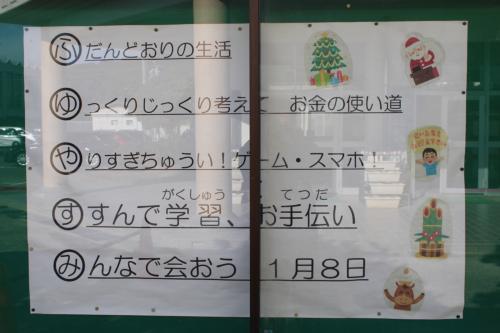 ふだんどおりの生活
ゆっくりじっくり考えて お金の使い道
やりすぎちゅうい!ゲーム・スマホ!
がくしゅう てつだ
すすんで学習、お手伝い
みんなで会おう 1月8日